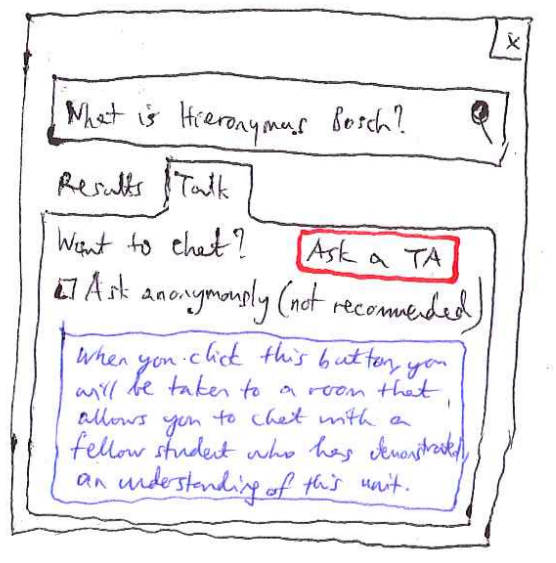 x
What is Hieronymus Bosch?
Results Talk
Want to chat? Ask a TA
Ask anonymously (not recommended)
When you click this button, you
will be taken to a room that
allows you to chat with a
fellow student who has demonstrated
an understanding of this unit.